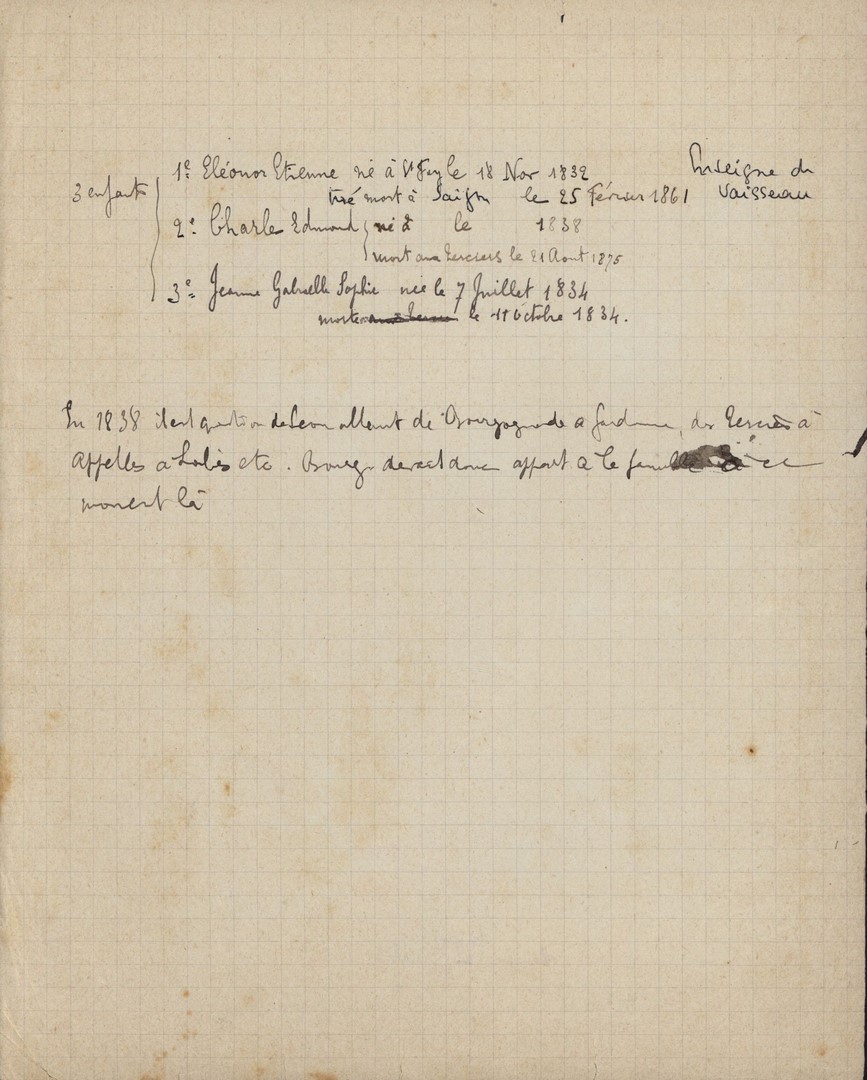 1º Eléonor Etienne né à St Foy le 18 Nov 1832 Enseigne de
3 enfants tué mort à Saigon le 25 Février 1861 Vaisseau
2º Charles Edmond né à le 1838
mort aux Terciers le 21 Aout 1875
3º Jeanne Gabrielle Sophie née le 7 Juillet 1834
morte le 11 Octobre 1834.
En 1838 il est question de Leon allant de Bourgogne de a des à
Appelles a etc. Bourg devait donc appart à la famille à ce
moment là